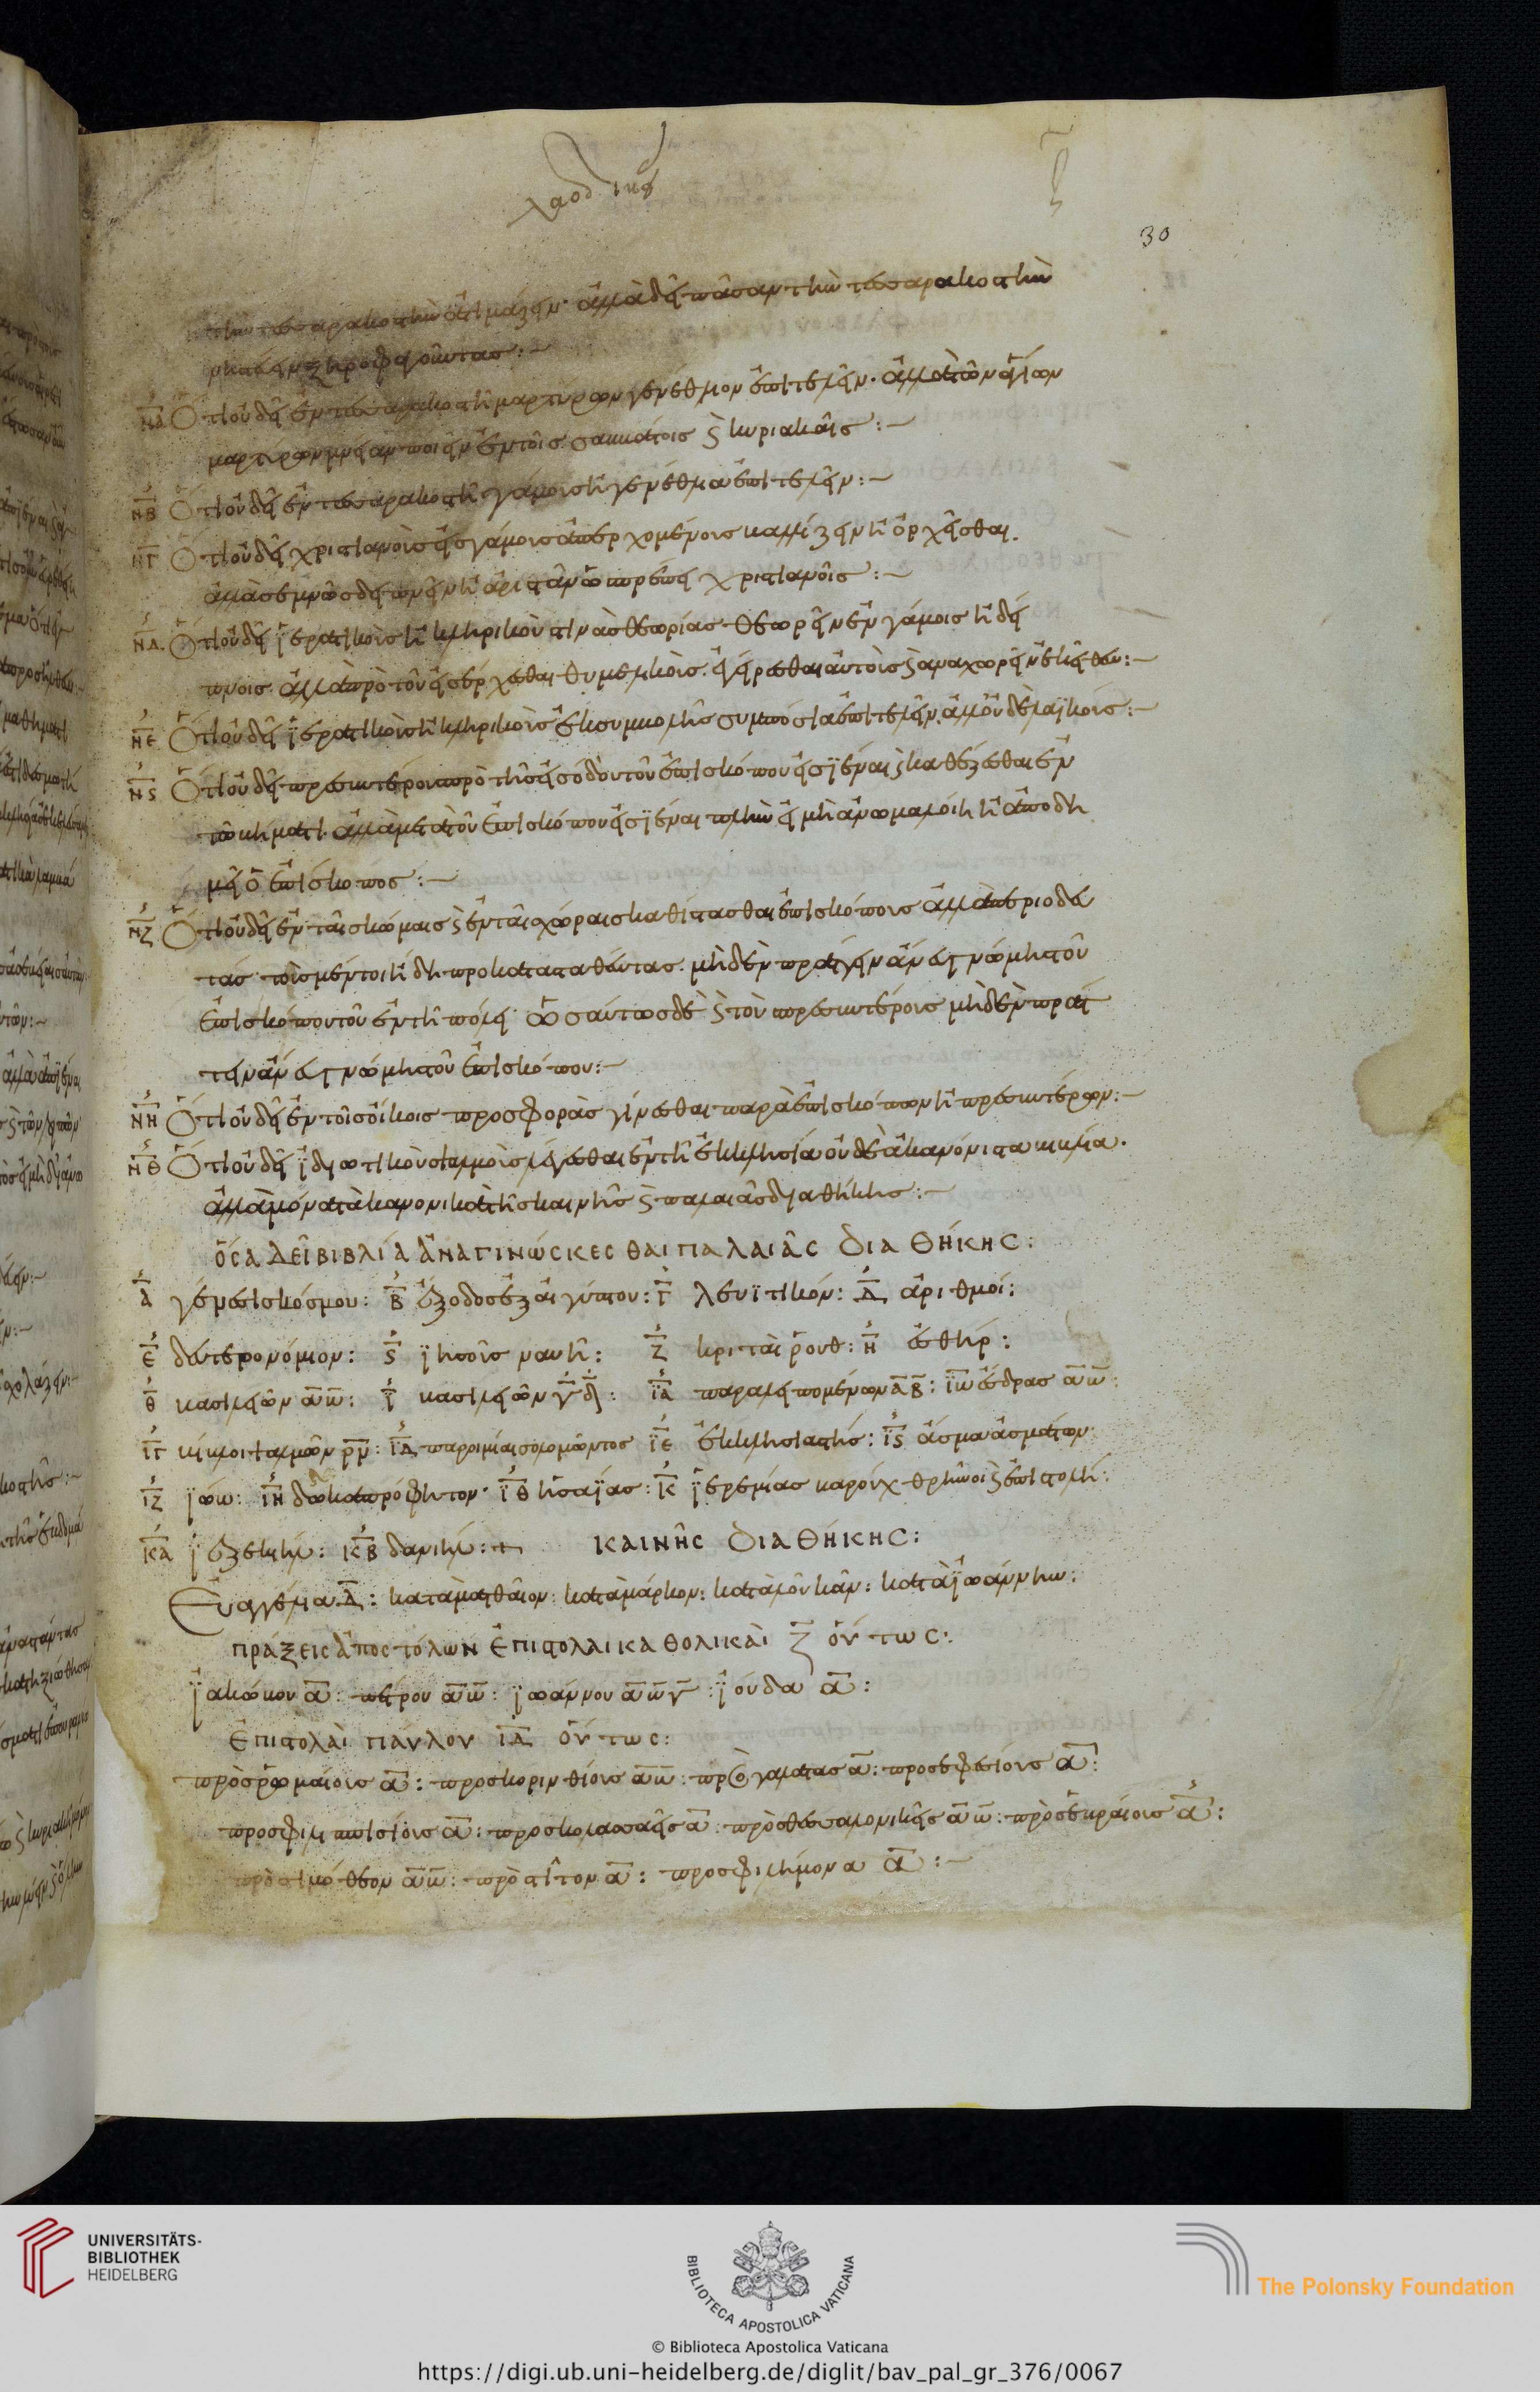 λαοδικ
ξ
30
τὴν τεσσαρακοστὴν ἀτιμάζειν· ἀλλὰ δεῖ πᾶσαν τὴν τεσσαρακοστὴν
νηστεύειν ξηροφαγοῦντας:~
ΝΑ Ὅτι οὐ δεῖ ἐν τεσσαρακοστῆ μαρτύρων γενέθλιον ἐπιτελεῖν· ἀλλὰ τῶν ἁγίων
μαρτύρων μνείαν ποιεῖν ἐν τοῖς σαββάτοις ϗ κυριακαῖς:~
ΝΒ Ὅτι οὐ δεῖ ἐν τεσσαρακοστῆ γάμους ἢ γενέθλια ἐπιτελεῖν:~
ΝΓ Ὅτι οὐ δεῖ χριστιανοὺς εἰς γάμους ἀπερχομένους βαλλίζειν ἢ ὀρχεῖσθαι.
ἀλλὰ σεμνῶς δειπνεῖν ἢ ἀριστᾶν ὡς πρέπει χριστιανοῖς:~
ΝΔ. Ὅτι οὐ δεῖ ἱερατικοὺς ἢ κληρικοὺς τινὰς θεωρίας θεωρεῖν ἐν γάμοις ἢ δεί
πνοις. ἀλλὰ πρὸ τοῦ εἰσέρχεσθαι θυμελικοὺς. ἐγείρεσθαι αὐτοὺς ϗ ἀναχωρεῖν ἐκεῖθεν:~
ΝΕ Ὅτι οὐ δεῖ ἱερατικοὺς ἢ κληρικοὺς ἐκ συμβολῆς συμπόσια ἐπιτελεῖν. ἀλλ' οὐδὲ λαϊκοὺς:~
Νϛ Ὅτι οὐ δεῖ πρεσβυτέρους πρὸ τῆς εἰσόδου τοῦ ἐπισκόπου εἰσϊέναι ϗ καθέζεσθαι ἐν
τῶ βήματι. ἀλλὰ μετὰ τοῦ ἐπισκόπου εἰσϊέναι πλὴν εἰ μὴ ἀνωμαλοίη ἢ ἀποδη
μεῖ ὁ ἐπίσκοπος:~
ΝΖ Ὅτι οὐ δεῖ ἐν ταῖς κώμαις ϗ ἐν ταῖς χώραις καθίστασθαι ἐπισκόπους ἀλλὰ περιοδευ
τάς· τοὺς μέντοι ἤδη προκατασταθέντας. μηδὲν πράττειν ἄνευ γνώμης τοῦ
ἐπισκόπου τοῦ ἐν τῆ πόλει· ὡσαύτως δὲ ϗ τοὺς πρεσβυτέρους μηδὲν πράτ
τειν ἄνευ γνώμης τοῦ ἐπισκόπου:~
ΝΗ Ὅτι οὐ δεῖ ἐν τοῖς οἴκοις προσφορὰς γίνεσθαι παρὰ ἐπισκόπων ἢ πρεσβυτέρων:~
ΝΘ Ὅτι οὐ δεῖ ἰδιωτικοὺς ψαλμοὺς λέγεσθαι ἐν τῆ ἐκκλησία οὐδὲ ἀκανόνιστα βιβλία.
ἀλλὰ μόνα τὰ κανονικὰ τῆς καινῆς ϗ παλαιᾶς διαθήκης:~
ὍϹΑ ΔΕῖ ΒΙΒΛΊΑ ἈΝΑΓΙΝΏϹΚΕϹΘΑΙ ΠΑΛΑΙᾶϹ ΔΙΑΘΉΚΗϹ:
Α γένεσις κόσμου: Β ἔξοδος ἐξ αἰγύπτου: Γ λευϊτικόν: Δ ἀριθμοί:
Ε δευτερονόμιον: ϛ ϊησοῦς ναυῆ: Ζ κριταὶ ῥούθ: Η ἐσθήρ:
Θ βασιλειῶν α β: Ι βασιλειῶν γ δ: ΙΑ παραλειπομένων Α Β: ΙΒ ἔσδρας α β:
ΙΓ βίβλοι ψαλμῶν ρν: ΙΔ παροιμίαι σολομῶντος ΙΕ ἐκκλησιαστής: Ιϛ ᾆσμα ἀσμάτων:
ΙΖ ϊώβ: ΙΗ δωδεκαπρόφητον· ΙΘ ἡσαΐας: Κ ἱερεμίας βαρούχ θρῆνοι ϗ ἐπιστολή:
ΚΑ ἰεζεκιήλ: ΚΒ δανιήλ: ΚΑΙΝῆϹ ΔΙΑΘΉΚΗϹ:
Εὐαγγέλια Δ: κατὰ ματθαῖον: κατὰ μάρκον: κατὰ λουκᾶν: κατὰ ϊωάννην:
ΠΡάξειϹ ἈΠΟϹΤΌΛΩΝ ἘΠΙϹΤΟΛΑΙ ΚΑΘΟΛΙΚΑὶ Ζ ΟὝΤΩϹ:
ἰακώβου α: πέτρου α β: ϊωάννου α β γ: ἰούδα α:
ἘΠΙϹΤΟΛΑὶ ΠΑΎΛΟΥ ΙΔ ΟὝΤΩϹ:
πρὸς ῥωμαίους α: προς κορινθίους α β: πρὸς γαλάτας α: προς ἐφεσίους α:
προς φιλιππισίους α: προς κολασσαεῖς α: πρὸς θεσσαλονικεῖς α β: πρὸς ἑβραίους α:
πρὸς τιμόθεον α β: πρὸς τίτον α: προς φιλήμονα α:~
UNIVERSITÄTS-
BIBLIOTHEK
HEIDELBERG
BIBLIOTECA APOSTOLICA VATICANA
The Polonsky Foundation
© Biblioteca Apostolica Vaticana
https://digi.ub.uni-heidelberg.de/diglit/bav_pal_gr_376/0067